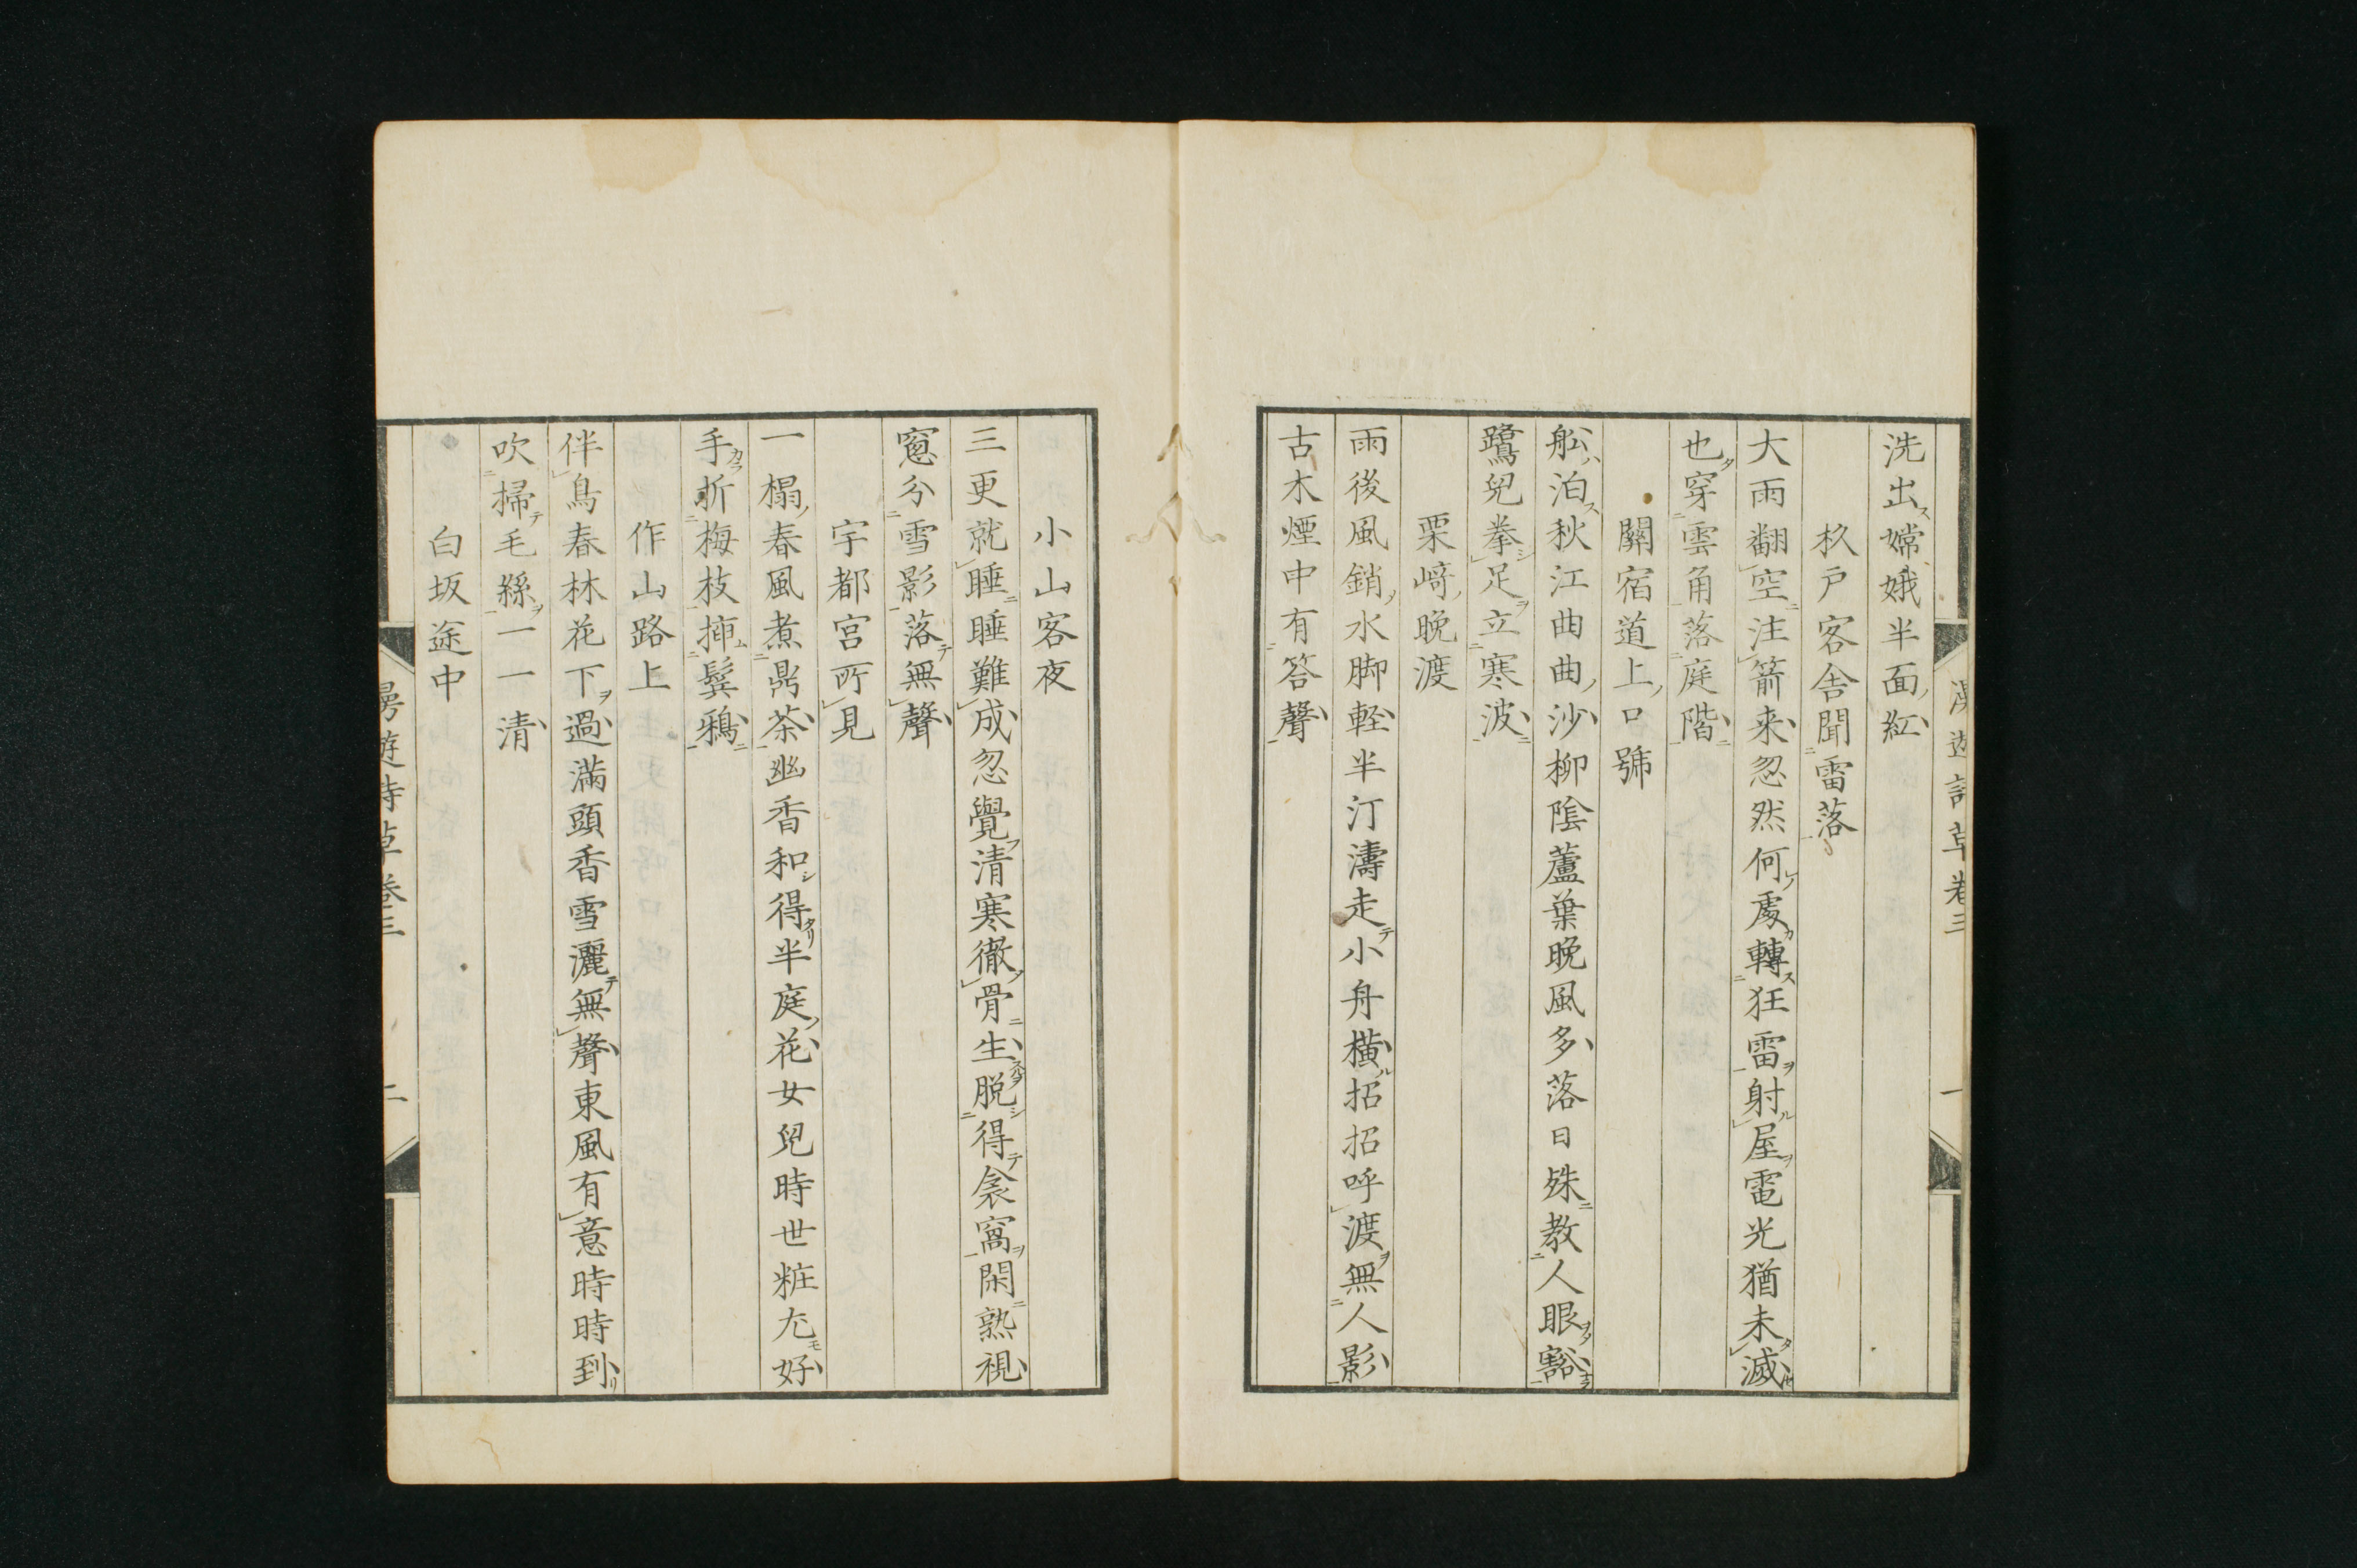 漫遊詩草卷三
一
洗出嫦娥半面紅
杦戸客舎聞雷落
大雨翻空注箭来忽然何處轉狂雷射屋電光猶未滅
也穿雲角落庭階
關宿道上口號
舩泊秋江曲曲沙柳陰蘆葉晩風多落日殊教人眼豁
鷺兒拳足立寒波
栗﨑晩渡
雨後風銷水脚軽半汀濤走小舟橫招招呼渡無人影
古木煙中有答聲
小山客夜
三更就睡睡難成忽覺清寒徹骨生脱得衾窩閑熟視
窻分雪影落無聲
宇都宮所見
一榻春風煮鼎茶幽香和得半庭花女兒時世粧尤好
手折梅枝揷鬂鴉
作山路上
伴鳥春林花下過滿頭香雪灑無聲東風有意時時到
吹掃毛絲一一清
白坂途中
漫遊詩草卷三
二